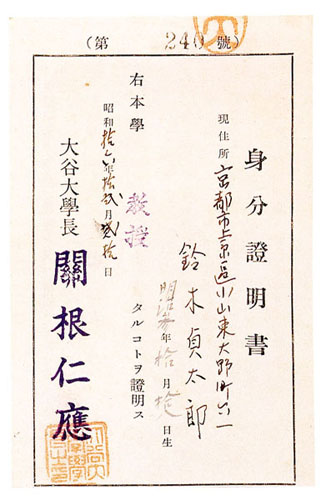 (第 240 號)
身分證明書
現住所 京都市上京區小山東大野町六一
鈴木貞太郎
明治 年拾月 日生
右本學 教授 タルコトヲ證明ス
昭和拾六年拾弐月弐拾日
大谷大學長 關根仁應